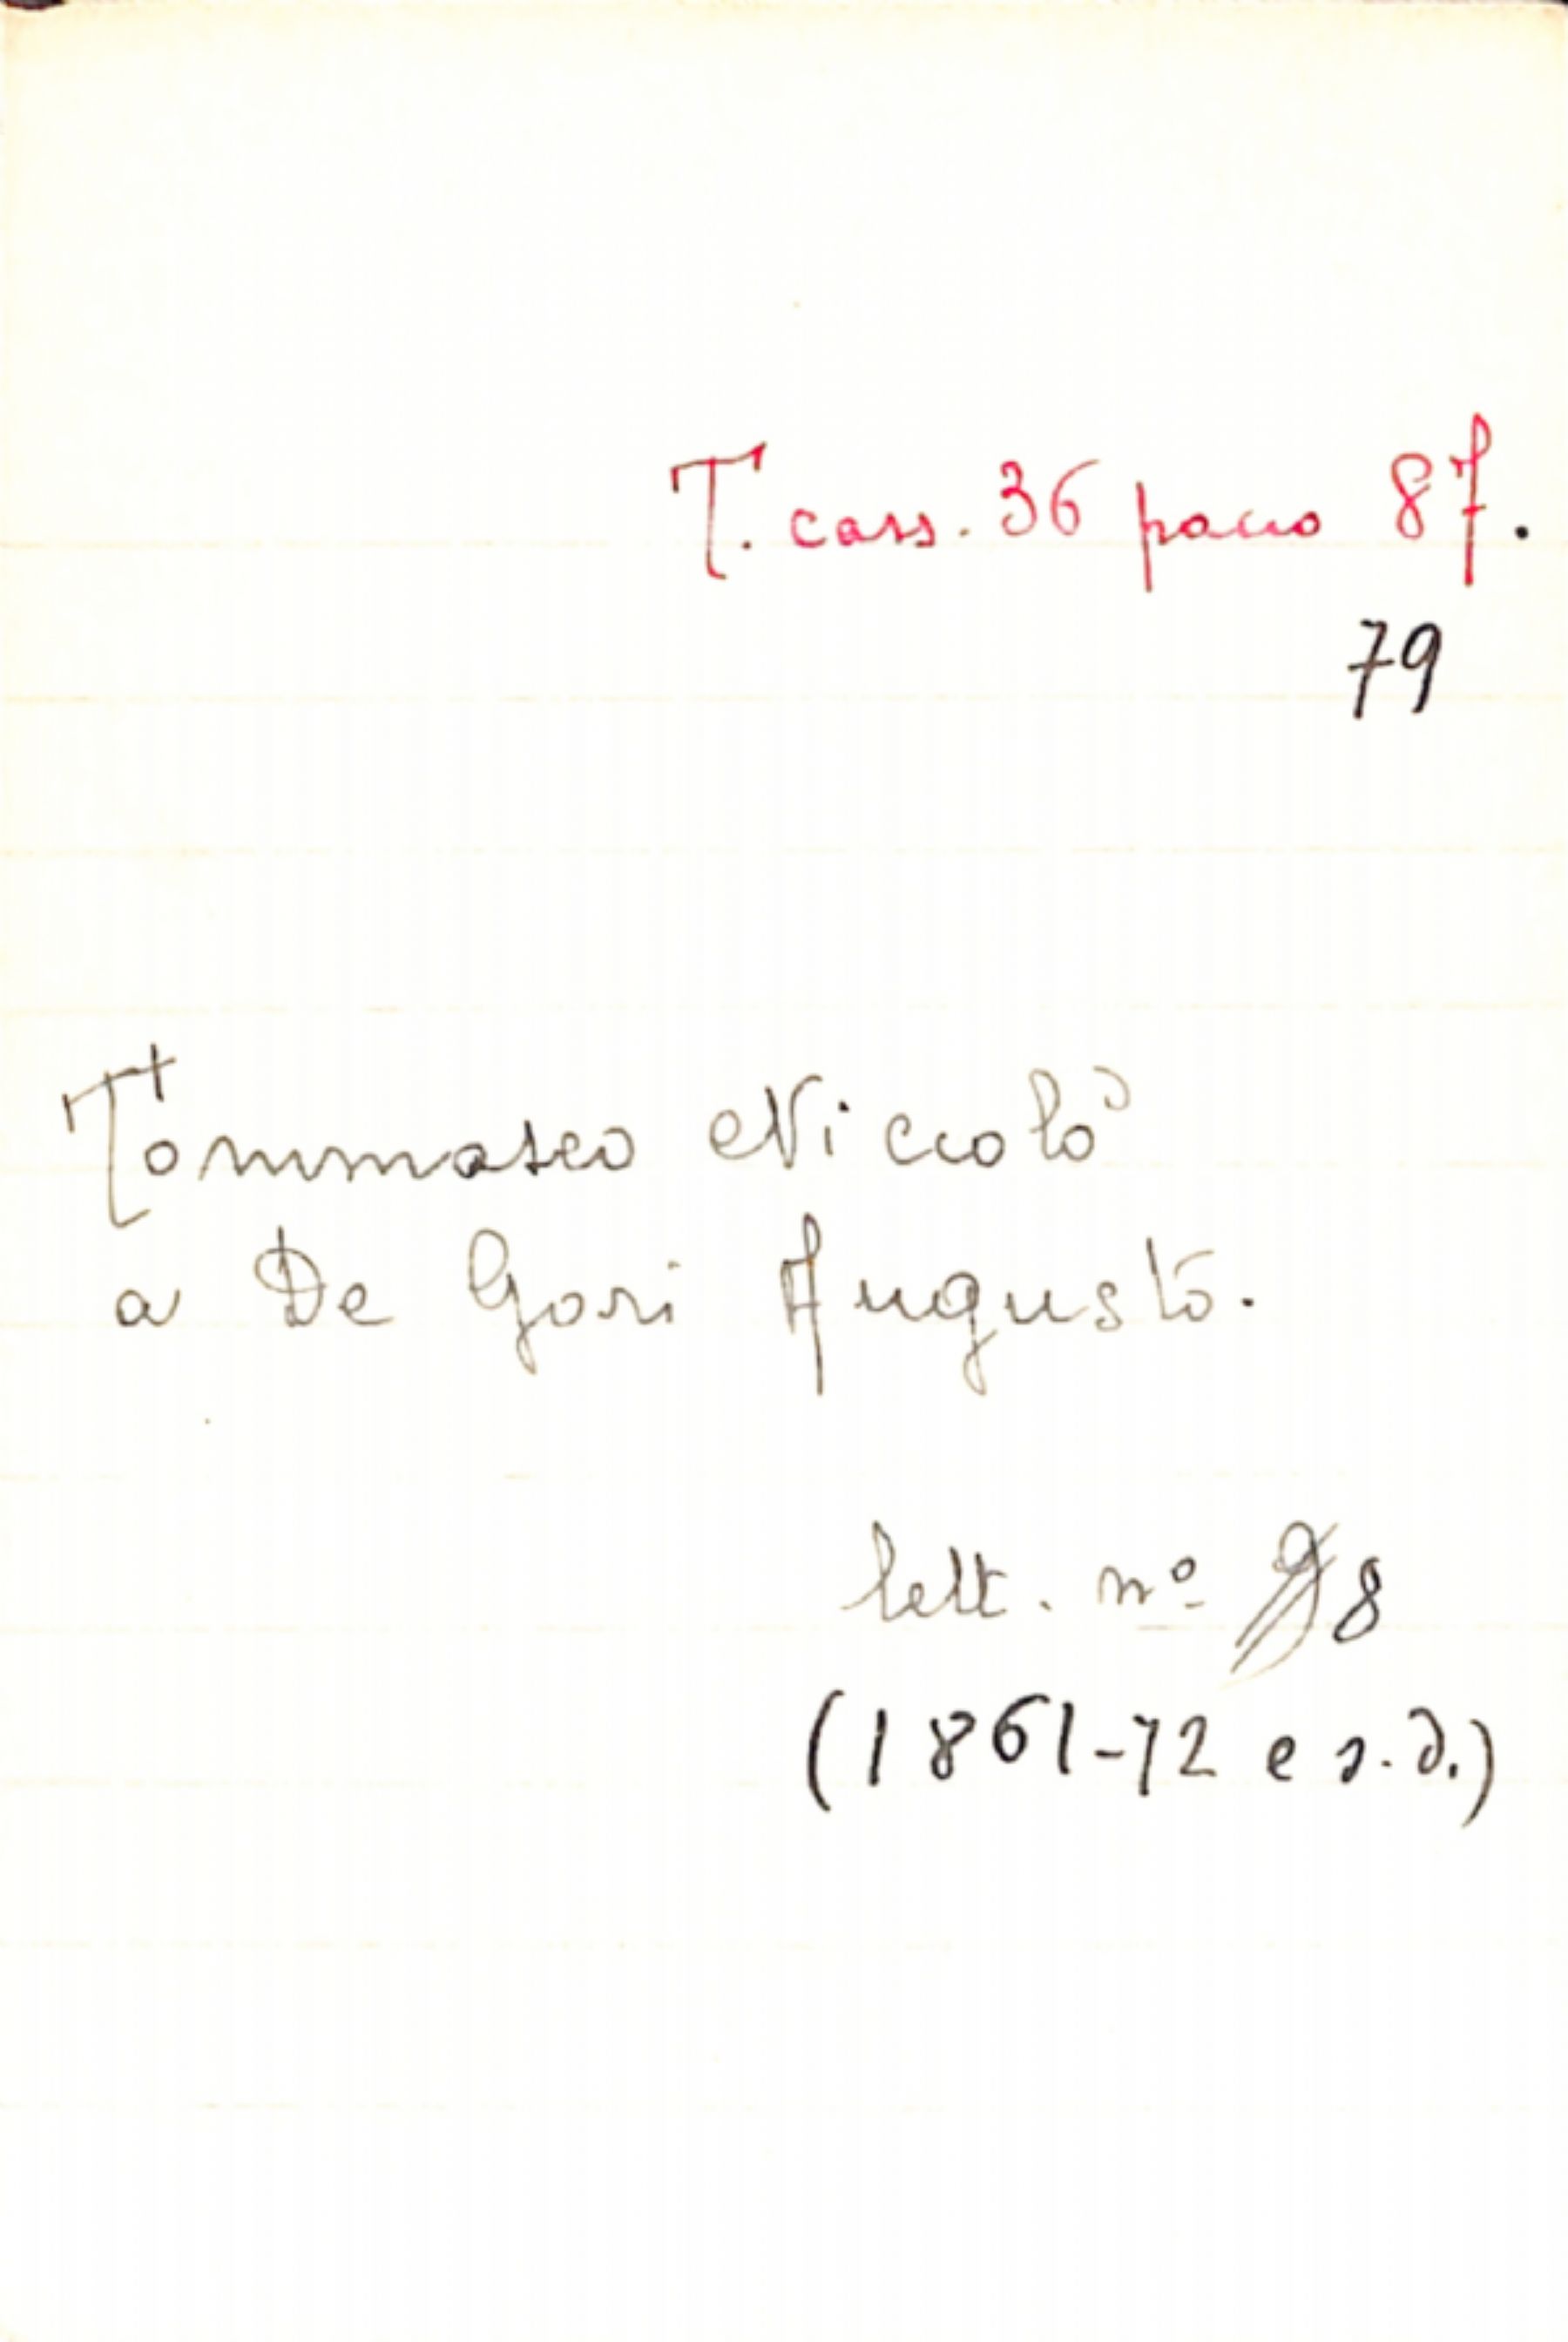 T. cass. 36 pacco 87.
79
Tommaseo Niccolò
a De Gori Augusto.
lett. nº 9 8
(1861-72 e s.d.)